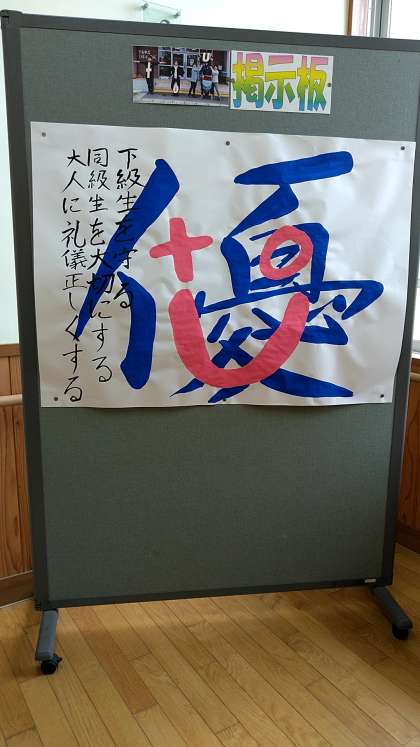 掲示板
優
下級生を守る
同級生を大切にする
大人に礼儀正しくする